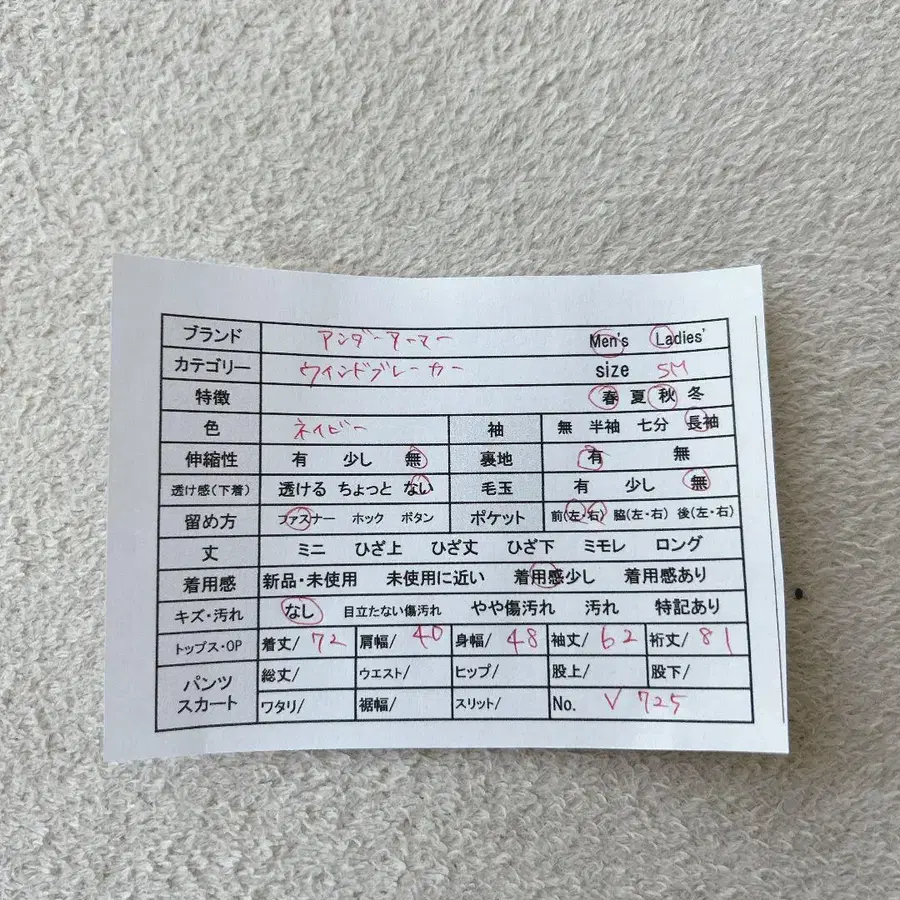 ブランド アンダーアーマー Men's Ladies'
カテゴリー ウィンドブレーカー size SM
特徴 春 夏 秋 冬
色 ネイビー 袖 無 半袖 七分 長袖
伸縮性 有 少し 無 裏地 有 無
透け感(下着) 透ける ちょっと ない 毛玉 有 少し 無
留め方 ファスナー ホック ボタン ポケット 前(左・右) 脇(左・右) 後(左・右)
丈 ミニ ひざ上 ひざ丈 ひざ下 ミモレ ロング
着用感 新品・未使用 未使用に近い 着用感少し 着用感あり
キズ・汚れ なし 目立たない傷汚れ やや傷汚れ 汚れ 特記あり
トップス・OP 着丈/ 72 肩幅/ 40 身幅/ 48 袖丈/ 62 裄丈/ 81
パンツ スカート 総丈/ ウエスト/ ヒップ/ 股上/ 股下/
ワタリ/ 裾幅/ スリット/ No. V 725